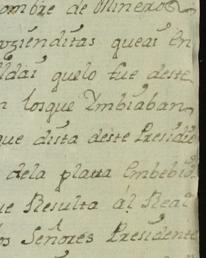 ombre de Mineros
azienditas queai En
aldai quelo fue deste
n losque Ymbiaban
que dista deste Presidio
dela plata Embebid
ue Resulta ál Real
os Señores Presidente